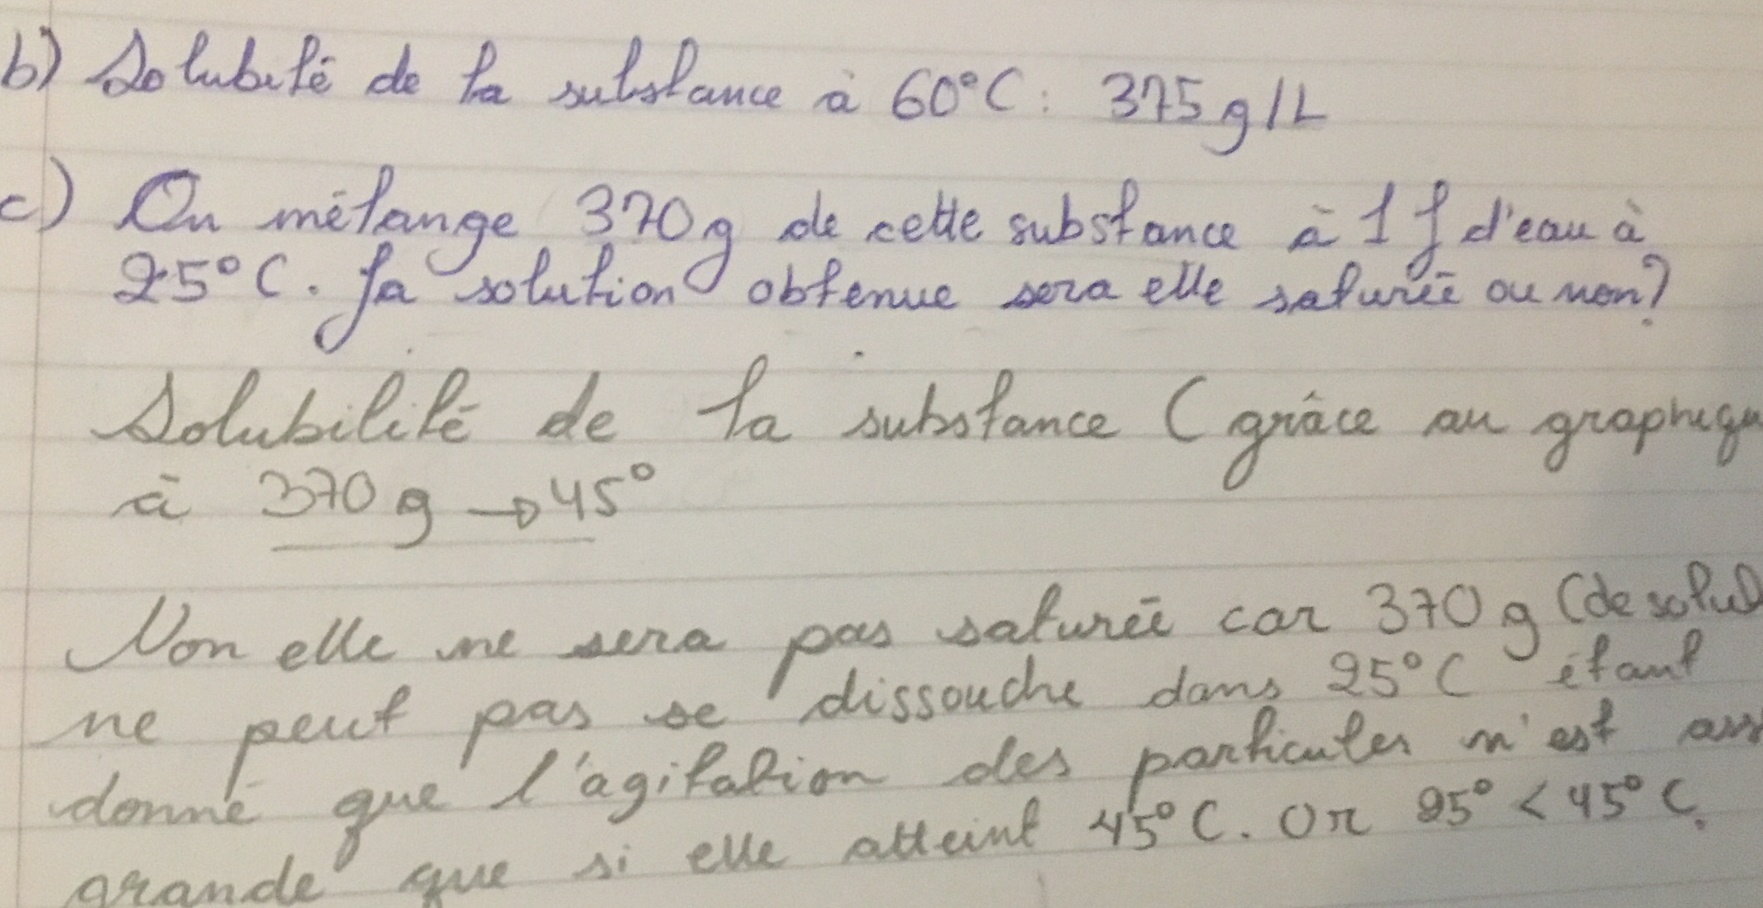 b) Solubité de la substance à 60°C : 375 g/L
c) On mélange 370g de cette substance à 1 l d'eau à
25°C. La solution obtenue sera elle saturée ou non?
Solubilité de la substance (grâce au graphiqu
à 370 g → 45°
Non elle ne sera pas saturée car 370 g (de solut
ne peut pas se dissouche dans 25°C étant
donné que l'agitation des particules n'est ass
grande que si elle atteint 45°C. Or 25° < 45°C.